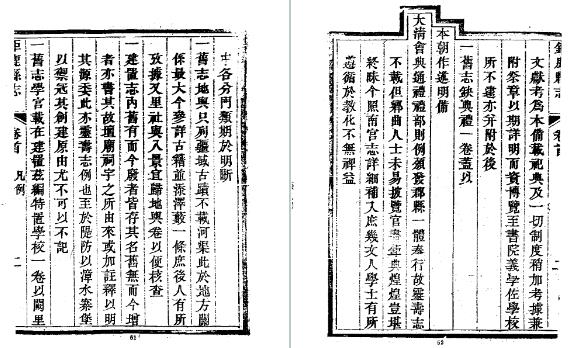 中各分門類期於明晰
一舊志地輿只列疆域古蹟不載河渠此於地方關
係最大今參詳古籍並添澤藪一條庶後人有所
攷據又里社與八景宜歸地輿卷以便核查
一建置志內舊有而今廢者皆存其名舊無而今增
者亦書其故壇廟祠宇之所由來或加註釋以明
其源委此亦靈壽志例也至於隄防以漳水寨堡
以禦寇其創建原由尤不可以不記
一舊志學官載在建置茲獨特置學校一卷以闕里
鹿縣志 卷首 凡例 二
61
縣志 卷首 二
文獻考為本備載祀典及一切制度稍加考據兼
附祭章以期詳明而資博覽至書院義學佐學校
所不逮亦并附於後
一舊志缺典禮一卷蓋以
本朝作述明備
大清會典通禮禮部則例頒發郡縣一體奉行故靈壽志
不載但鄉曲人士未易披覽官書鉅典煌煌豈堪
終昧今照南宮志詳細補入庶幾文人學士有所
遵循於教化不無裨益